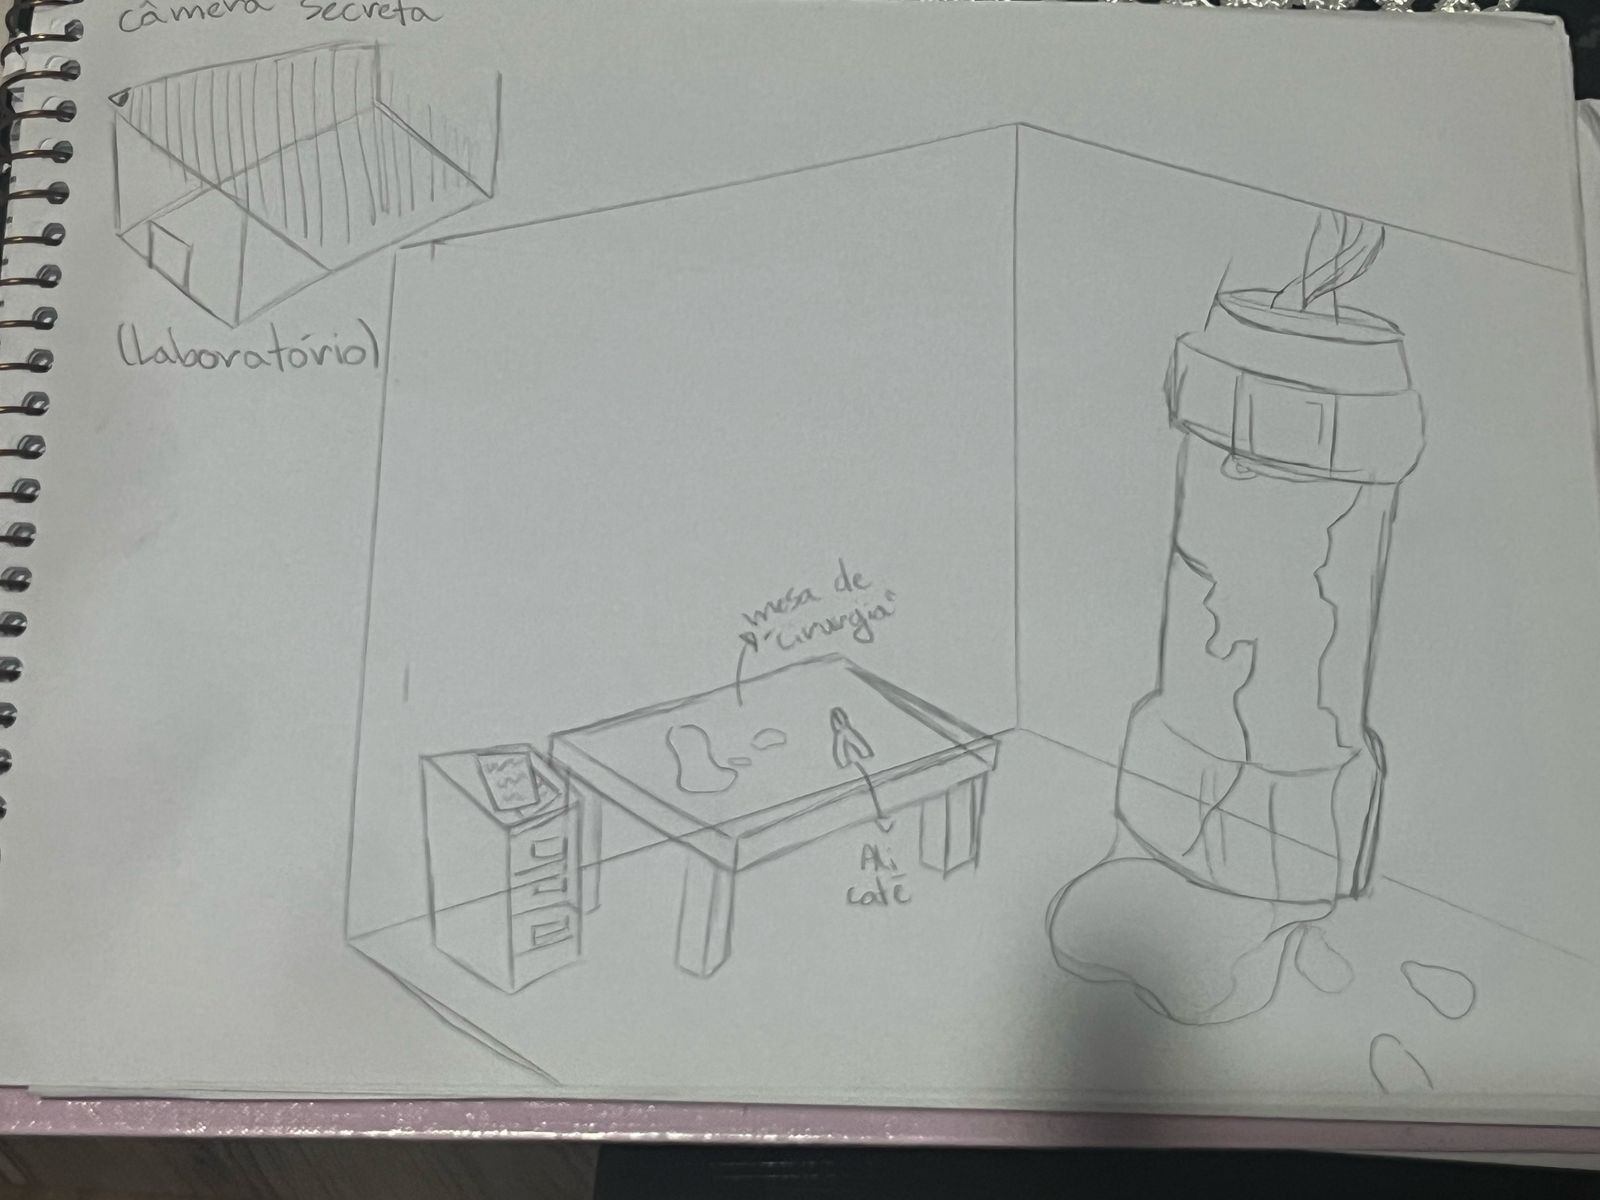 câmera secreta
(Laboratório)
mesa de
"cirurgia"
Ali
cate